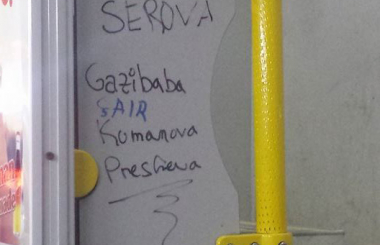 SEROVA
Gazibaba
SAIR
Kumanova
Presheva